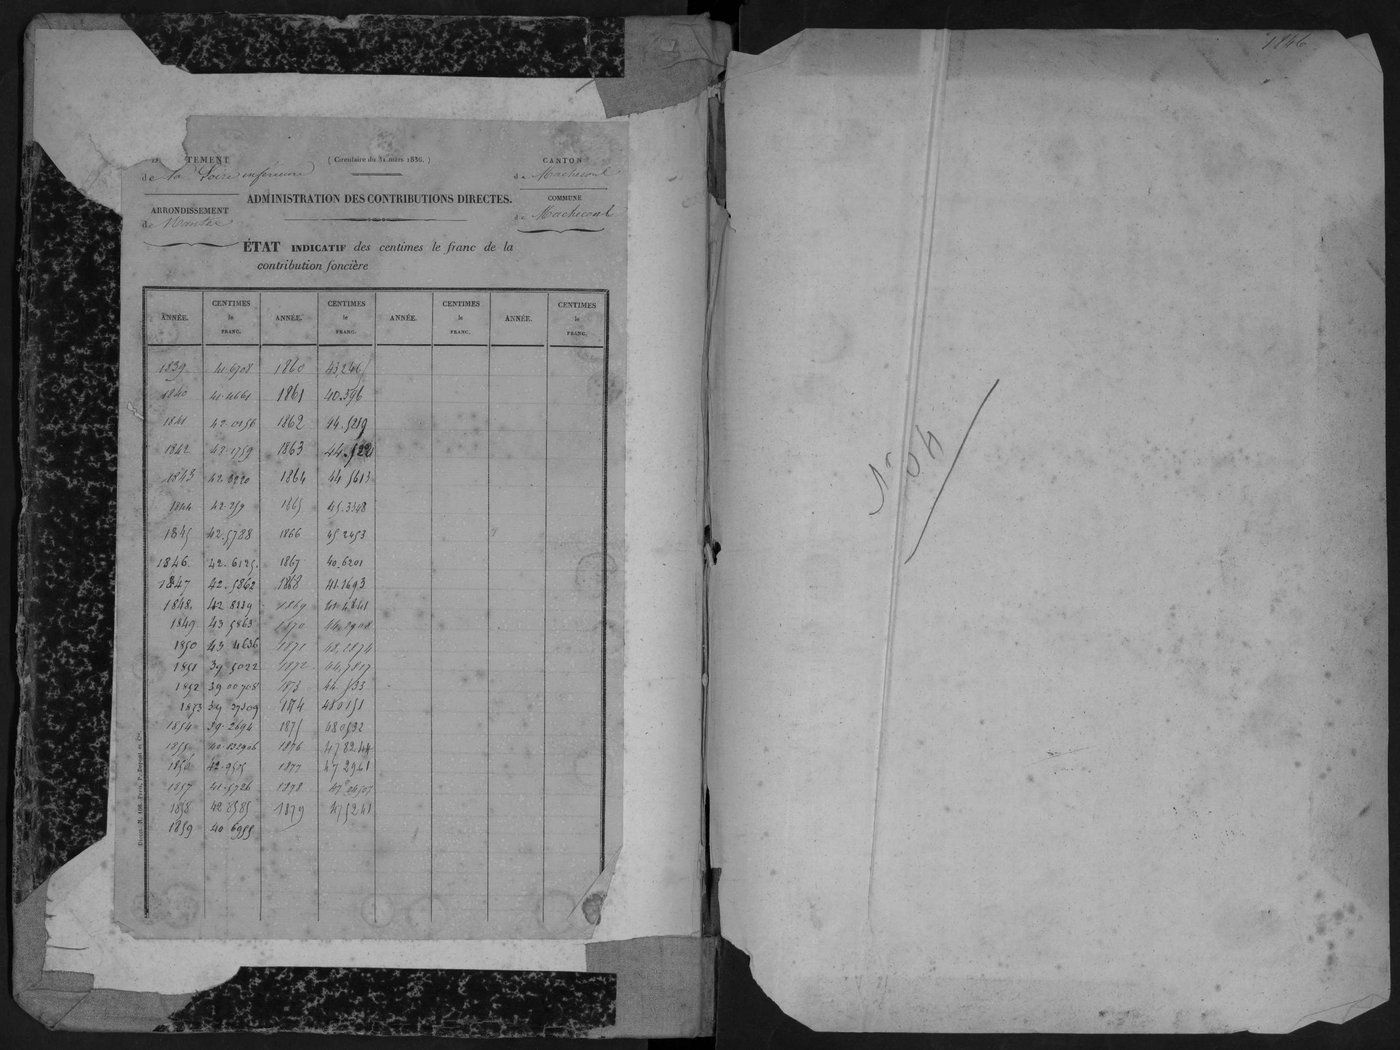 TEMENT
de la Loire inférieure
( Circulaire du 31 mars 1836. )
CANTON
de Machecoul
ADMINISTRATION DES CONTRIBUTIONS DIRECTES.
ARRONDISSEMENT
de Nantes
COMMUNE
de Machecoul
ÉTAT INDICATIF des centimes le franc de la
contribution foncière
ANNÉE. CENTIMES le FRANC. ANNÉE. CENTIMES le FRANC. ANNÉE. CENTIMES le FRANC. ANNÉE. CENTIMES le FRANC.
1839 41.6708 1860 43.246
1840 41.4661 1861 40.596
1841 42.0156 1862 44.5219
1842 42.1759 1863 44.522
1843 42.3220 1864 44.5613
1844 42.259 1865 45.3348
1845 42.5788 1866 45.2453
1846 42.6125 1867 40.6201
1847 42.5862 1868 41.1693
1848 42.8239 1869 41.4841
1849 43.5863 1870
1850 43.4636 1871 48.2874
1851 39.5022 1872 44.5817
1852 39.00708 1873 44.533
1853 39.27309 1874 48.0151
1854 39.2694 1875 48.0532
1855 40.132906 1876 47.8244
1856 42.9575 1877 47.2961
1857 41.5726 1878
1858 42.8585 1879 47.5241
1859 40.6955
1846